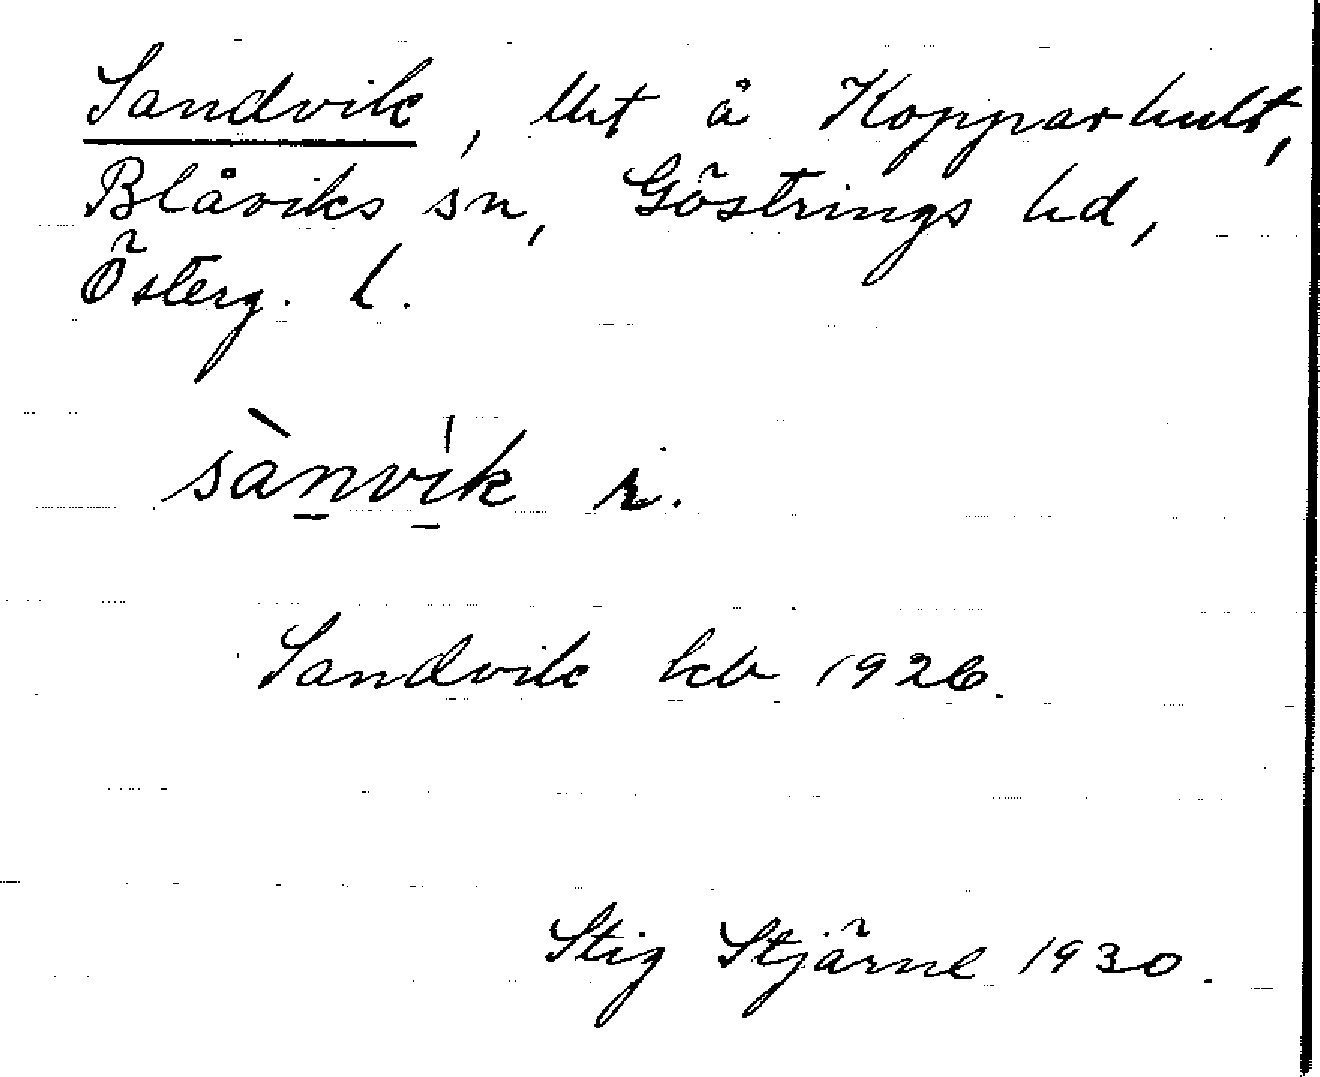 Sandvik, lht å Kopparhult,
Blåviks sn, Göstrings hd,
Österg. l.
sànvik r.
Sandvik kb 1926.
Stig Stjärne 1930.